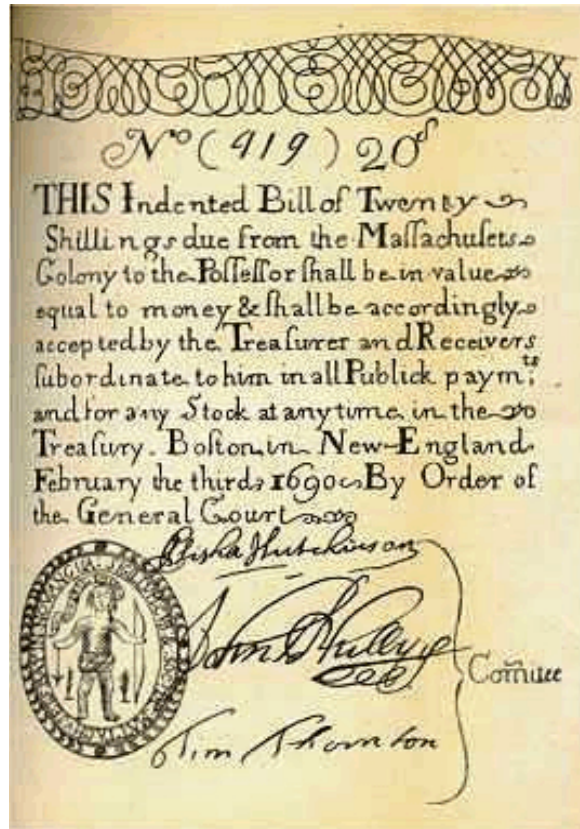 Nº (919) 20ˢ
THIS Indented Bill of Twenty
Shillings due from the Maſſachuſets
Colony to the Poſſeſſor ſhall be in value
equal to money & ſhall be accordingly
accepted by the Treaſurer and Receivers
ſubordinate to him in all Publick paymᵗˢ
and for any Stock at any time in the
Treaſury. Boſton in New-England
February the third 1690 By Order of
the General Court
Elisha Hutchinson
John
Comitee
Tim Thornton